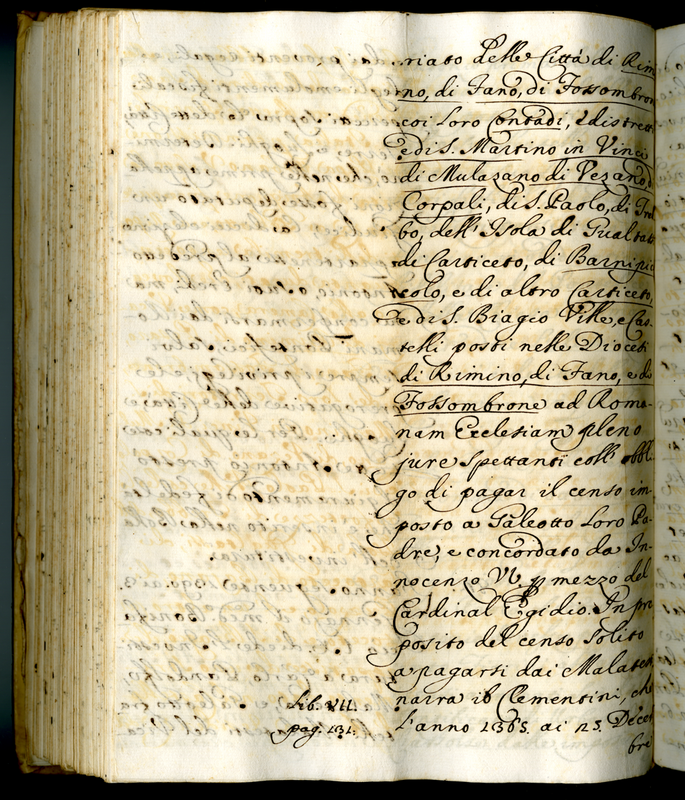 riato delle Città di Rim
no, di Fano, di Fossombron
coi Loro Contadi, e distretti
e di S. Martino in Vinci
di Mulazano di Vezano, d
Corpali, di S. Paolo, di Tre
bo, dell' Isola di Gualtatt
di Carticeto, di Barnipic
colo, e di altro Carticeto,
e di S. Biagio Ville, e Cas-
telli posti nelle Diocesi
di Rimino, di Fano, e di
Fossombrone ad Roma-
nam Ecclesiam pleno
jure spettanti coll' obbl
go di pagar il censo im-
posto a Galeotto Loro Pa-
dre, e concordato da In-
nocenzo VI. p mezzo del
Cardinal Egidio. In pro
posito del censo solito
a pagarsi dai Malatesti
narra il Clementini, che
Lib. VII.
pag. 131.
l'anno 1365. ai 25. Decem
bri